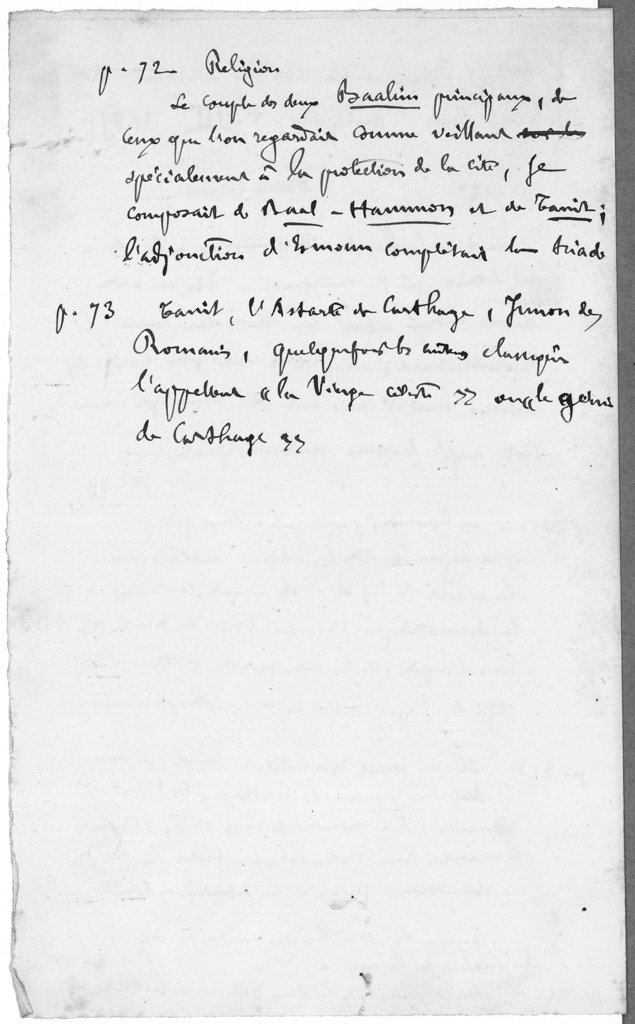 p. 72 Religion
Le couple des deux Baalim principaux, de
ceux que l'on regardait comme veillant
spécialement à la protection de la cité, se
composait de Baal-Hammon et de Tanit;
l'adjonction d'Esmoun complétait la triade
p. 73 Tanit, l'Astarté de Carthage, Junon des
Romains, quelquefois les auteurs classiques
l'appellent "la Vierge céleste" ou "le génie
de Carthage"